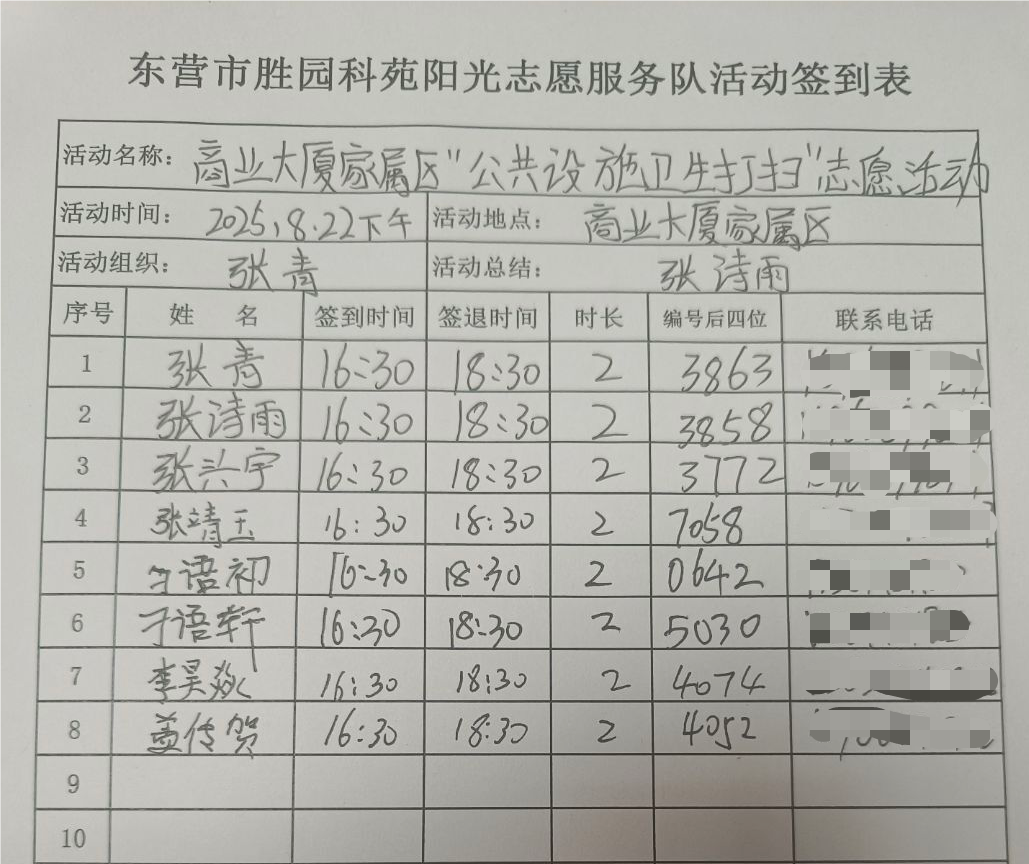 东营市胜园科苑阳光志愿服务队活动签到表
活动名称：商业大厦家属区“公共设施卫生打扫”志愿活动
活动时间：2025.8.22下午 活动地点：商业大厦家属区
活动组织：张青 活动总结：张诗雨
序号 姓名 签到时间 签退时间 时长 编号后四位 联系电话
1 张青 16:30 18:30 2 3863
2 张诗雨 16:30 18:30 2 3858
3 张兴宇 16:30 18:30 2 3772
4 张靖玉 16:30 18:30 2 7058
5 语初 16:30 18:30 2 0642
6 刁语轩 16:30 18:30 2 5030
7 李昊焱 16:30 18:30 2 4074
8 传贺 16:30 18:30 2 4052
9
10